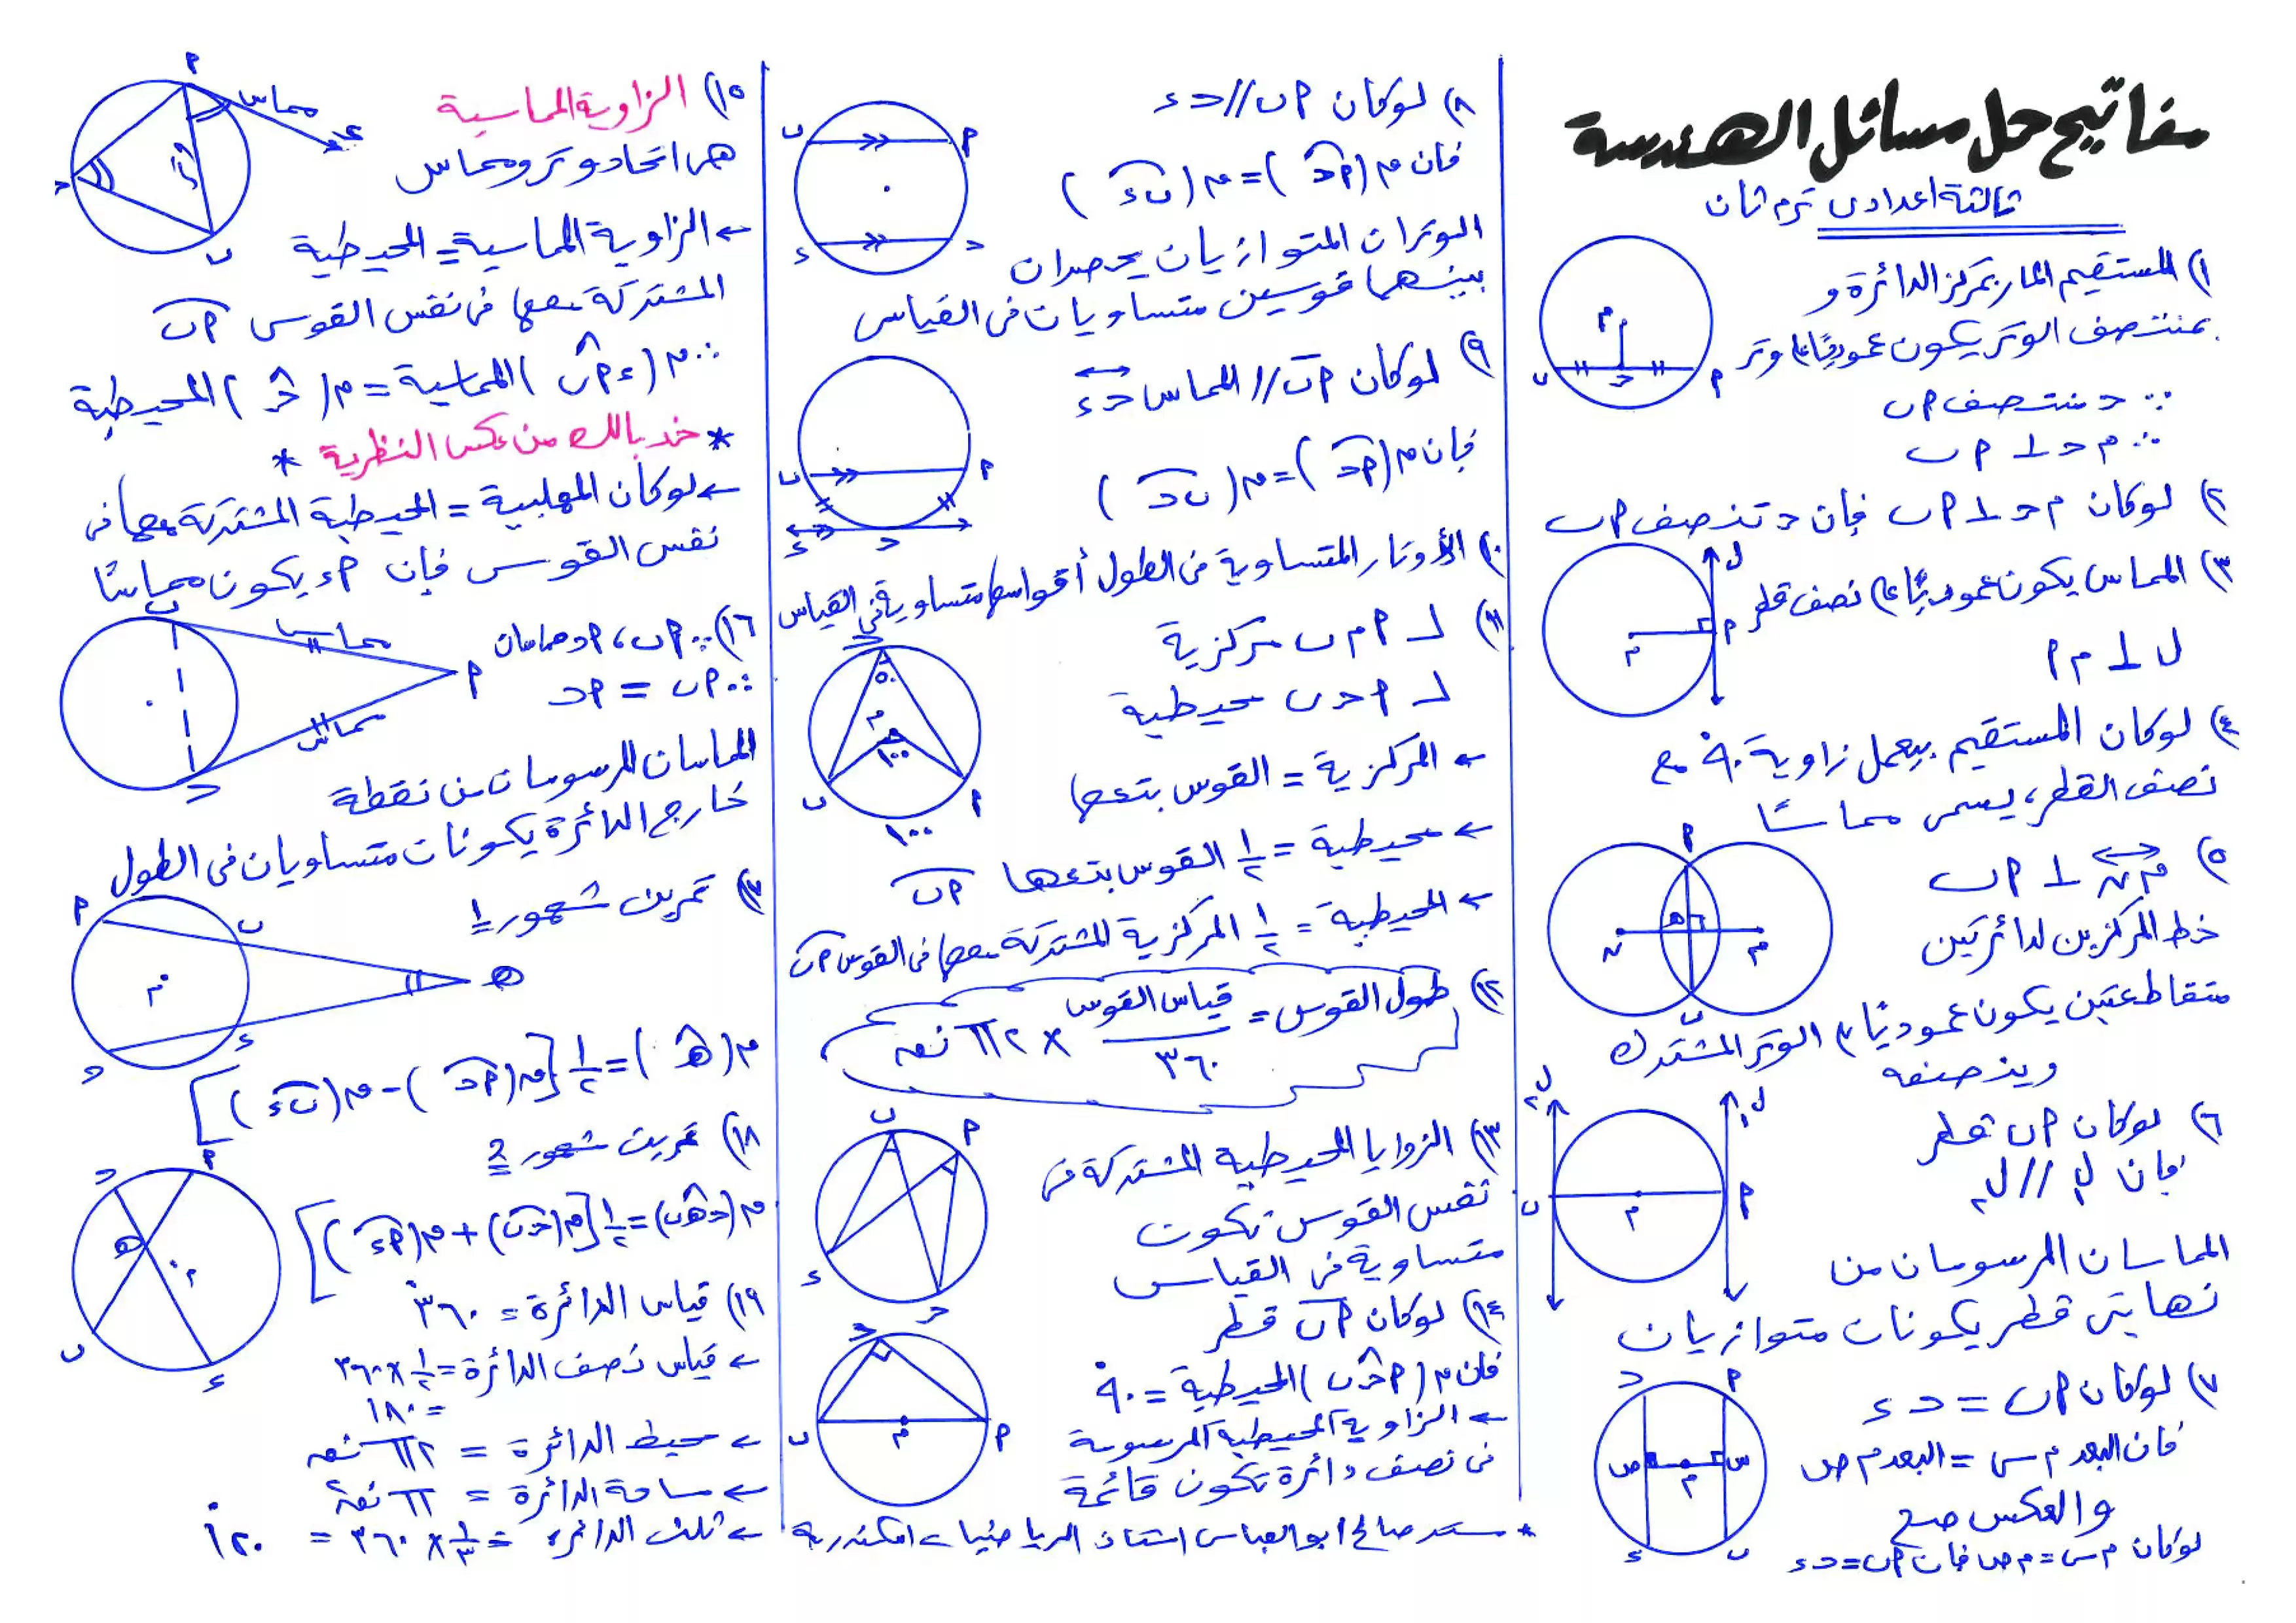 مفاتيح حل مسائل الهندسة
ثالثة اعدادى ترم ثان
١) المستقيم المار بمركز الدائرة و
بمنتصف الوتر يكون عموديًا على وتر
∵ حـ منتصف أ ب
∴ م حـ ⊥ أ ب
٢) لو كان م حـ ⊥ أ ب فإن حـ تنصف أ ب
٣) المماس يكون عموديًا على نصف قطر
ل ⊥ م أ
٤) لو كان المستقيم بيعمل زاوية ٩٠° مع
نصف القطر، يسمى مماسًا
٥) م ن ⊥ أ ب
خط المركزين لدائرتين
متقاطعتين يكون عموديًا على الوتر المشترك
وينصفه
٦) لو كان أ ب قطر
فإن ل١ // ل٢
المماسان المرسومان من
نهايتى قطر يكونان متوازيان
٧) لو كان أ ب = حـ ء
فان البعد م س = البعد م ص
والعكس صح
لو كان م س = م ص فان أ ب = حـ ء
٨) لو كان أ ب // حـ ء
فان م (أحـ) = م (ب ء)
الوتران المتوازيان يحصران
بينهما قوسين متساويان فى القياس
٩) لو كان أ ب // المماس حـ ء
فإن م (أحـ) = م (ب حـ)
١٠) الأوتار المتساوية فى الطول أقواسها متساوية فى القياس
١١) ∠ أ م ب مركزية
∠ أ حـ ب محيطية
← المركزية = القوس بتعها
← محيطية = ١/٢ القوس بتعها أ ب
← المحيطية = ١/٢ المركزية المشتركة معها فى القوس أ ب
١٢) طول القوس = قياس القوس / ٣٦٠ × ٢ π نق
١٣) الزوايا المحيطية المشتركة فى
نفس القوس تكون
متساوية فى القياس
١٤) لو كان أ ب قطر
فان م (أ حـ ب) المحيطية = ٩٠°
← الزاوية المحيطية المرسومة
فى نصف دائرة تكون قائمة
١٥) الزاوية المماسية
هى اتحاد وتر ومماس
← الزاوية المماسية = المحيطية
المشتركة معها فى نفس القوس أ ب
∴ م (ء أ ب) المماسية = م (حـ) المحيطية
* خد بالك من عكس النظرية *
← لو كان المهلبية = المحيطية المشتركة معها فى
نفس القوس فإن أ ء يكون مماسًا
١٦) ∵ أ ب ، أ حـ مماسان
∴ أ ب = أ حـ
المماسان المرسومان من نقطة
خارج الدائرة يكونان متساويان فى الطول
١٧) تمرين مشهور 1
م (هـ) = ١/٢ [م (أ حـ) - م (ب ء)]
١٨) تمرين مشهور 2
م (حـ هـ ب) = ١/٢ [م (حـ ب) + م (أ ء)]
١٩) قياس الدائرة = ٣٦٠°
← قياس نصف الدائرة = ١/٢ × ٣٦٠
= ١٨٠
← محيط الدائرة = ٢ π نق
← مساحة الدائرة = π نق²
← ثلث الدائرة = ١/٣ × ٣٦٠ = ١٢٠°
صالح ابو العباس استاذ الرياضيات اسكندرية
مماس
مماس
مماس
٥٠
١٠٠
١٠٠